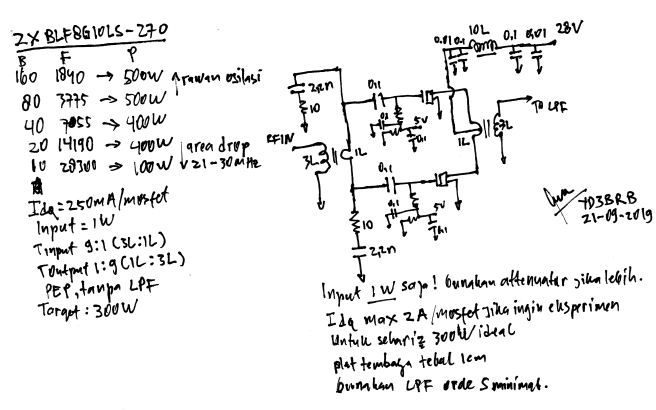 2X BLF8G10LS-270
B F P
160 1840 → 500W ↑rawan osilasi
80 3775 → 500W
40 7055 → 400W
20 14190 → 400W area drop
10 28300 → 100W ↓21-30MHz
Idq=250mA/mosfet
Input=1W
Tinput 9:1 (3L:1L)
Toutput 1:9 (1L:3L)
PEP, tanpa LPF
Target: 300W
2,2n
10
RFIN
3L
1L
10
2,2n
0,1
0,1
5V
0,1
0,1
0,1
5V
0,1
0,01 0,1
10L
0,1 0,01
28V
1L
3L
TO LPF
YD3BRB
21-09-2019
Input 1W saja! Gunakan attenuator jika lebih.
Idq max 2A/mosfet jika ingin eksperimen
Untuk sehari2 300W ideal
plat tembaga tebal 1cm
Gunakan LPF orde 5 minimal.